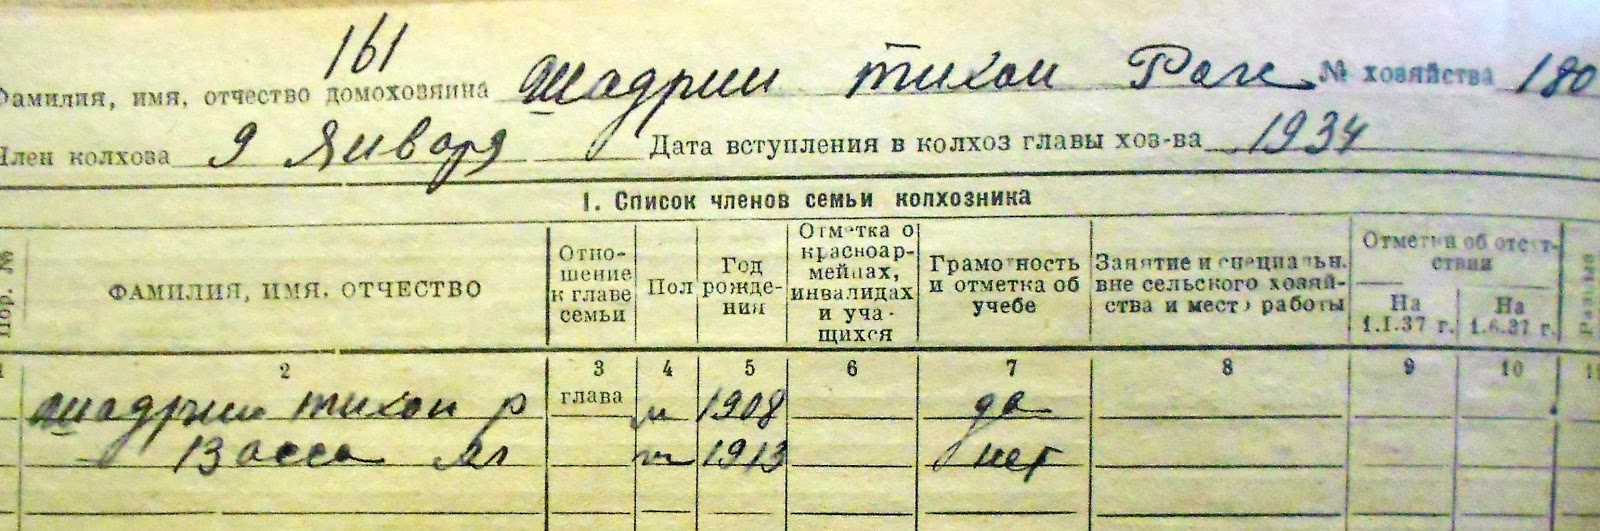 161
Фамилия, имя, отчество домохозяина Шадрин Тихон № хозяйства 180
Член колхоза 9 Января Дата вступления в колхоз главы хоз-ва 1934
1. Список членов семьи колхозника
Пор. № ФАМИЛИЯ, ИМЯ, ОТЧЕСТВО Отно-шение к главе семьи Пол Год рожде-ния Отметка о красноар-мейцах, инвалидах и уча-щихся Грамотность и отметка об учебе Занятие и специальн. вне сельского хозяй-ства и место работы Отметки об отсут-ствии На 1.I.37 г. На 1.6.37 г.
1 2 3 4 5 6 7 8 9 10 11
Шадрин Тихон Р глава м 1908 да
Васса 1913 нет